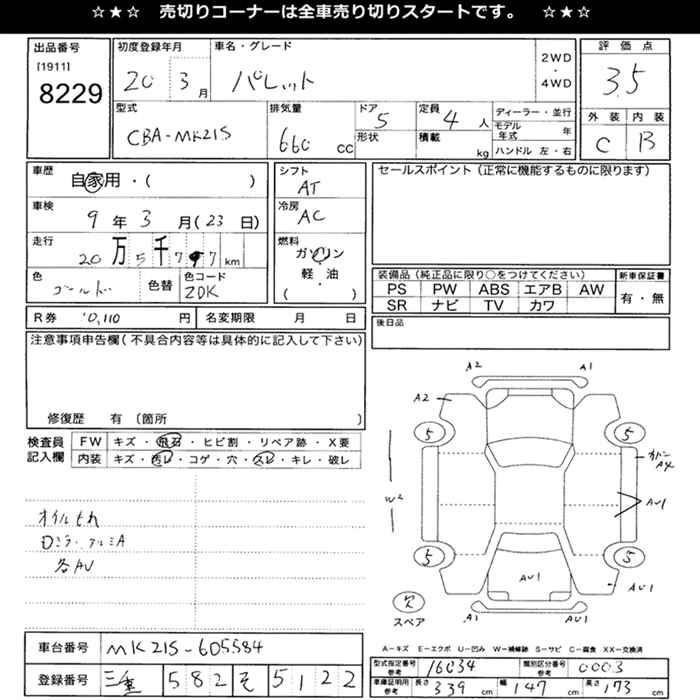 ☆★☆ 売切りコーナーは全車売り切りスタートです。 ☆★☆
出品番号 初度登録年月 車名・グレード 2WD・4WD 評価点
[1911] 8229 20 3月 パレット 3.5
型式 排気量 ドア 定員 ディーラー・並行 外装 内装
CBA-MK21S 660cc 5 4人 モデル年式 年 C B
形状 積載 kg ハンドル 左・右
車歴 自家用・( ) シフト AT セールスポイント(正常に機能するものに限ります)
車検 9年3月(23日) 冷房 AC
走行 20万5千7 7km 燃料 ガソリン・軽油 ( )
装備品(純正品に限り○をつけてください) 新車保証書
色 ゴールド 色替 色コード ZDK PS PW ABS エアB AW 有・無
SR ナビ TV カワ
R券 10,110円 名変期限 月 日 後日品
注意事項申告欄(不具合内容等は具体的に記入して下さい)
修復歴 有〔箇所 〕
検査員記入欄 FW キズ・飛石・ヒビ割・リペア跡・X要
内装 キズ・汚レ・コゲ・穴・スレ・キレ・破レ
オイルもれ
ロミラー・アルミA
各AU
A2 A1
A2
5 5
A4
W2 AU1
5 5
AU1 AU1
スペア
A1 A1
A-キズ E-エクボ U-凹み W-補修跡 S-サビ C-腐食 XX-交換済
車台番号 MK21S-605584 型式指定番号 参考 16034 類別区分番号 参考 0003
登録番号 三重 582 そ 5122 車庫証明用 参考 長さ 339cm 幅 147cm 高さ 173cm